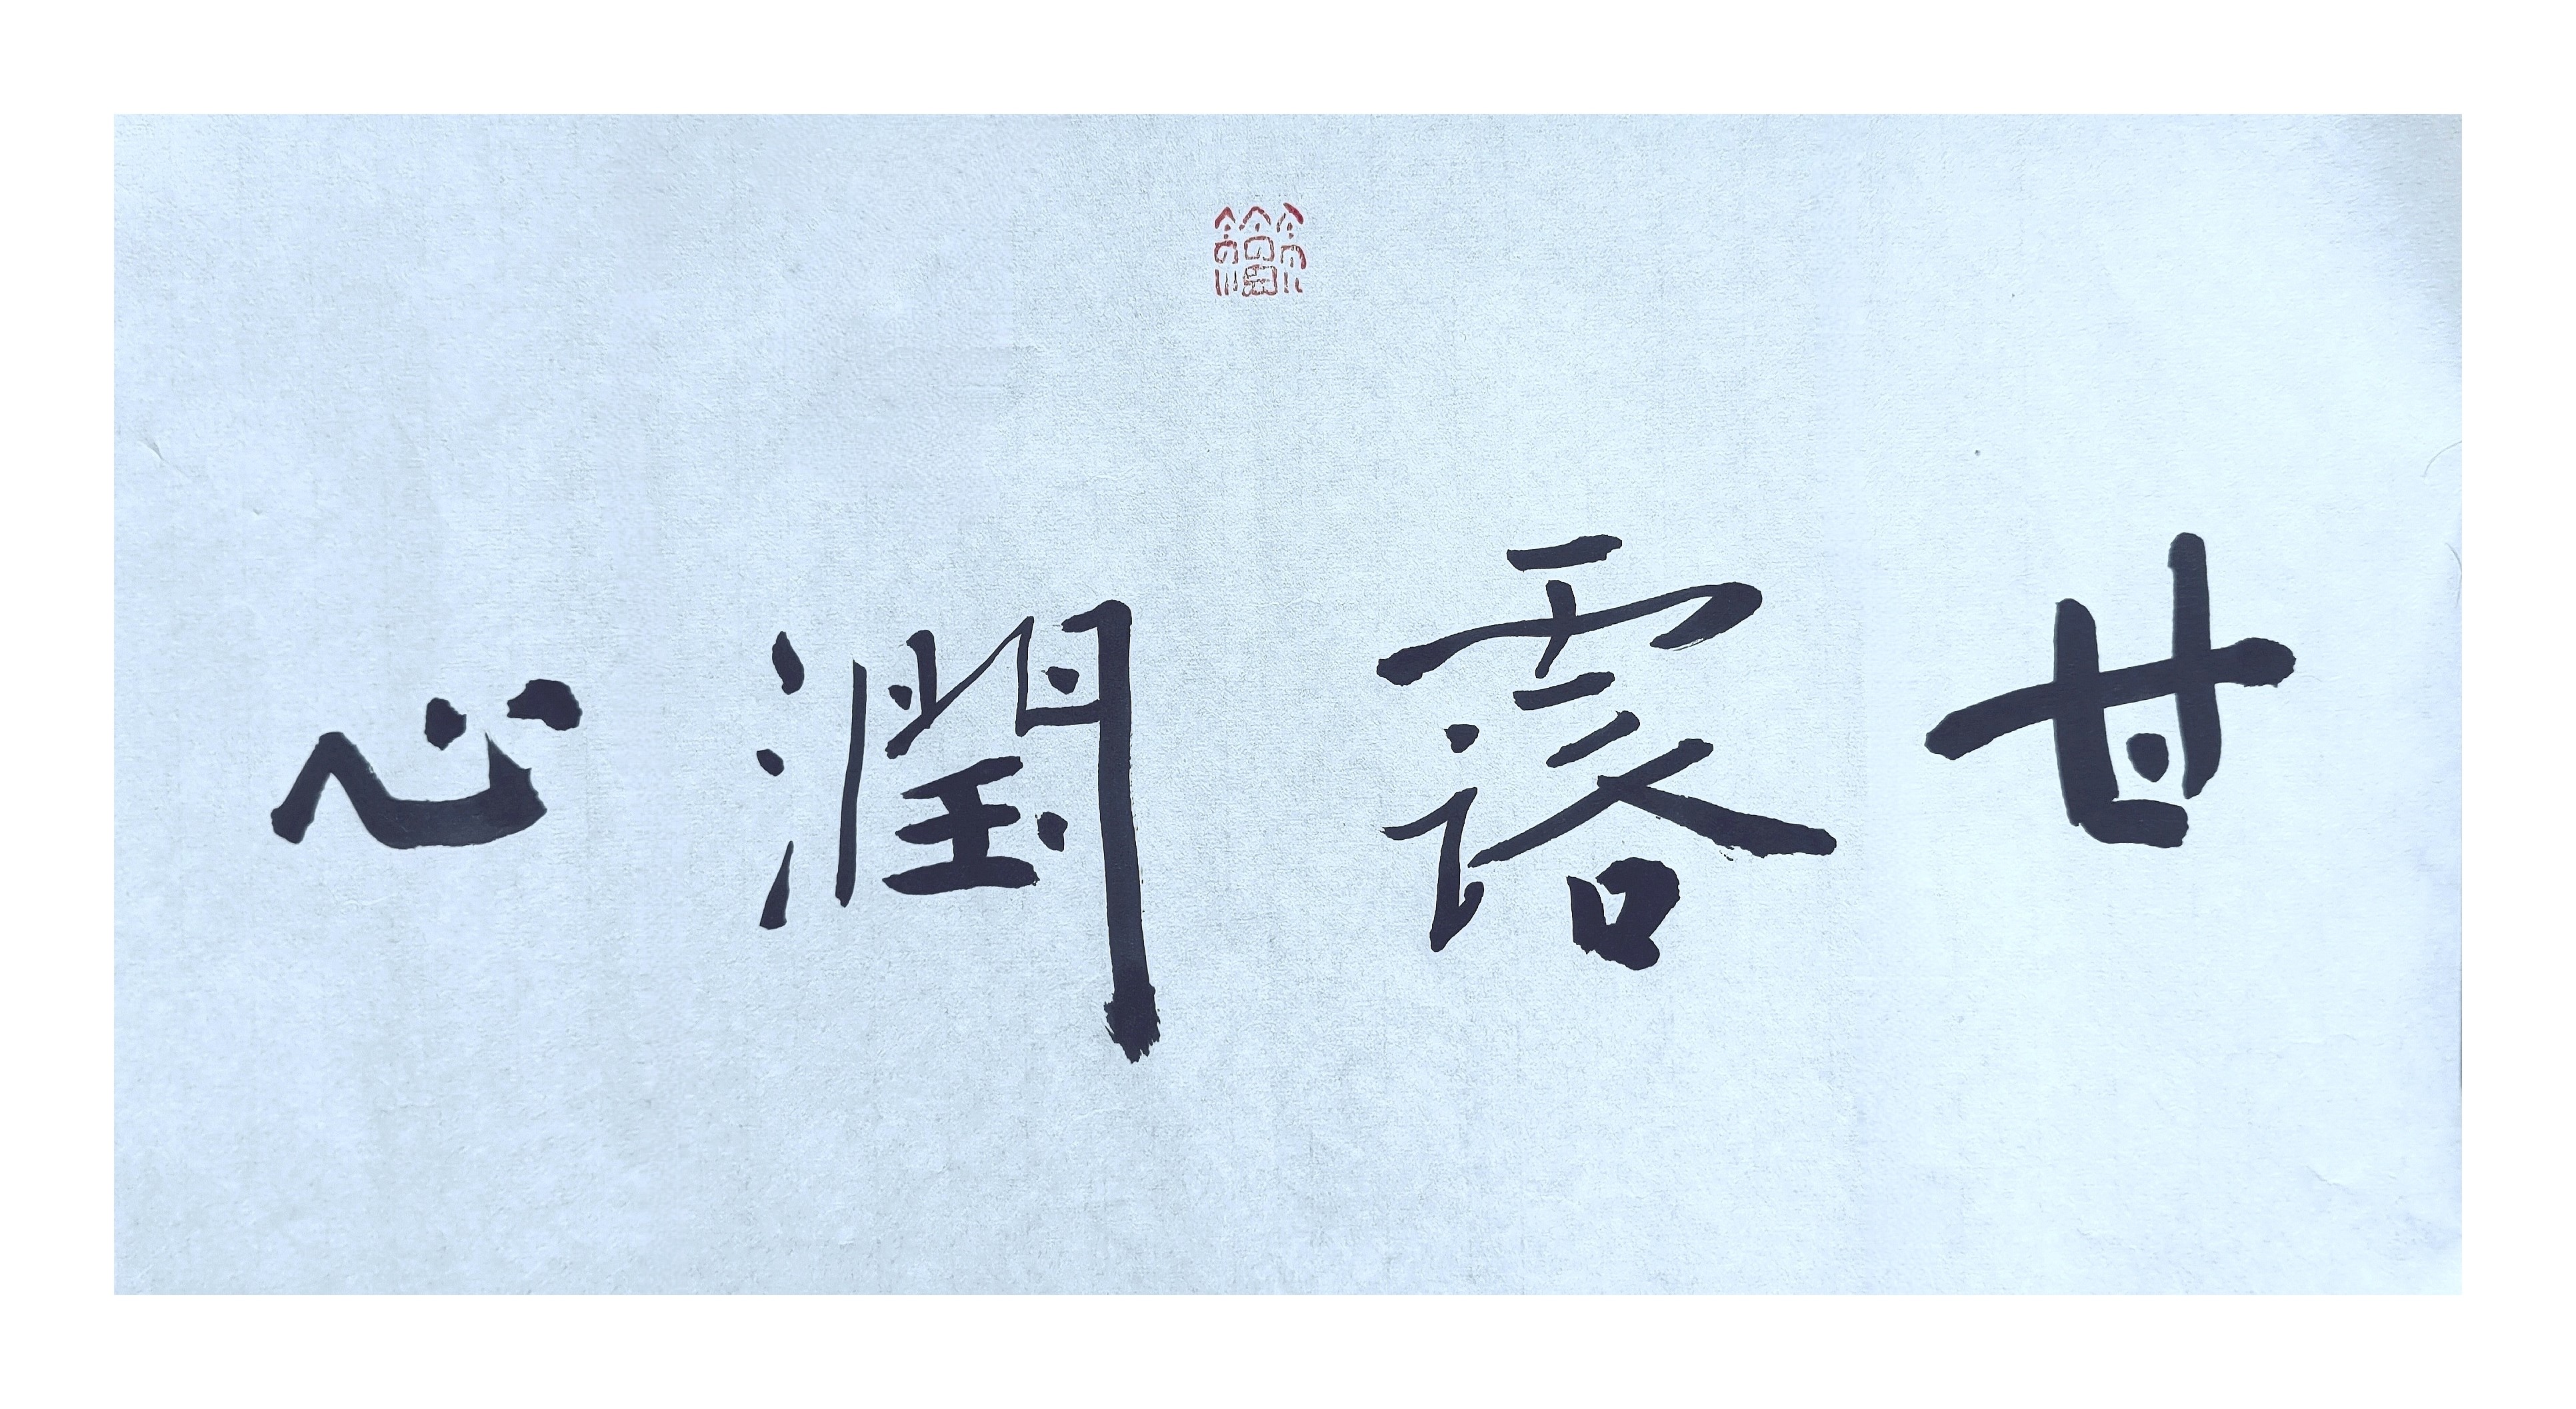 甘露潤心